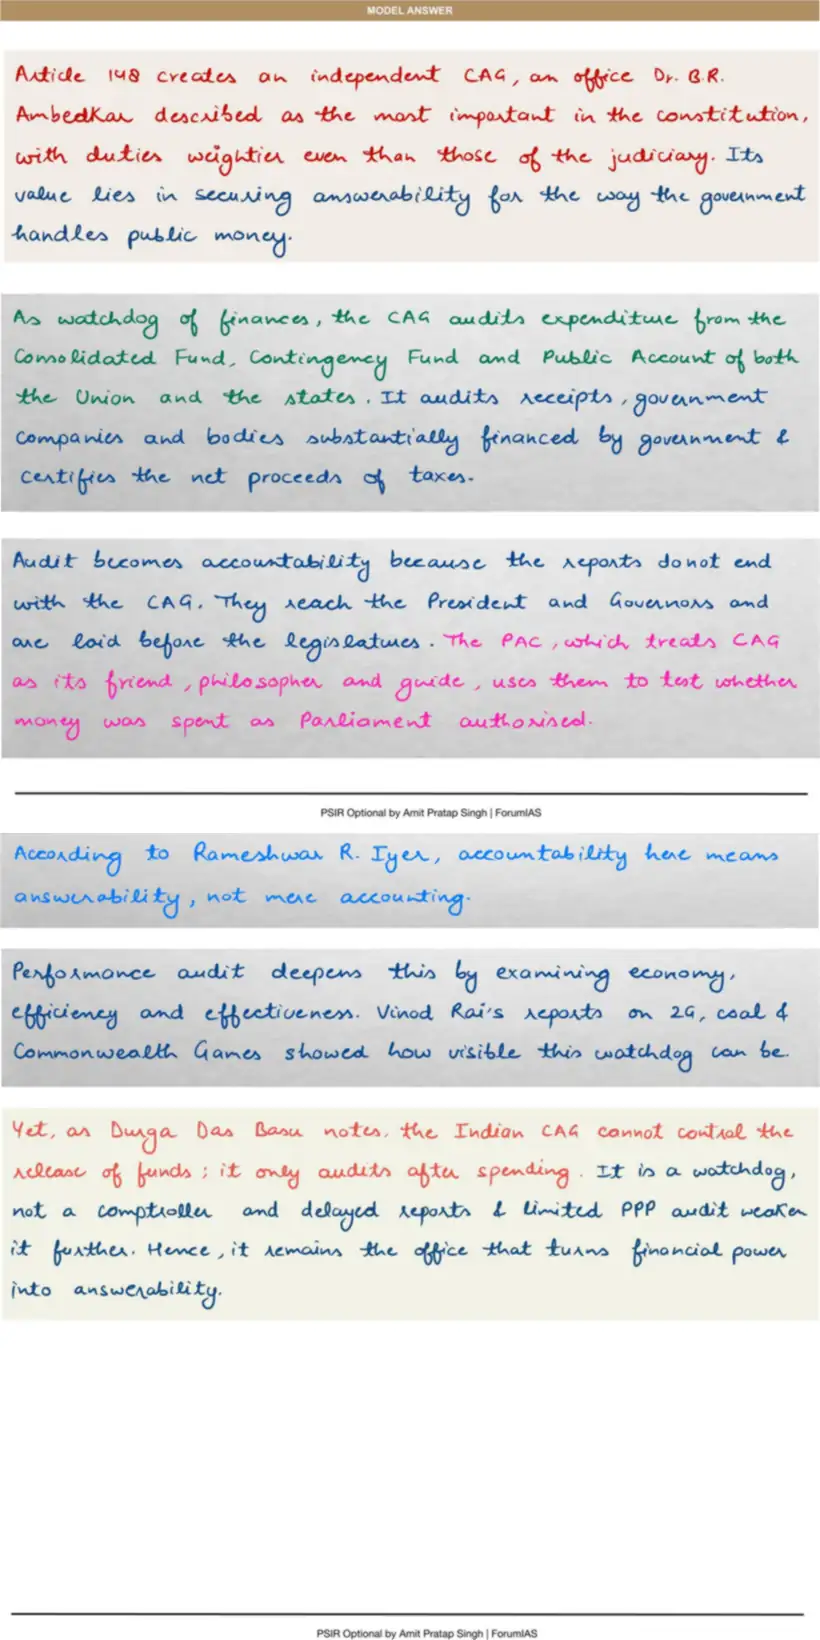 MODEL ANSWER
Article 148 creates an independent CAG, an office Dr. B.R.
Ambedkar described as the most important in the constitution,
with duties weightier even than those of the judiciary. Its
value lies in securing answerability for the way the government
handles public money.
As watchdog of finances, the CAG audits expenditure from the
Consolidated Fund, Contingency Fund and Public Account of both
the Union and the states. It audits receipts, government
companies and bodies substantially financed by government &
certifies the net proceeds of taxes.
Audit becomes accountability because the reports do not end
with the CAG. They reach the President and Governors and
are laid before the legislatures. The PAC, which treats CAG
as its friend, philosopher and guide, uses them to test whether
money was spent as Parliament authorised.
PSIR Optional by Amit Pratap Singh | ForumIAS
According to Rameshwar R. Iyer, accountability here means
answerability, not mere accounting.
Performance audit deepens this by examining economy,
efficiency and effectiveness. Vinod Rai's reports on 2G, coal &
Commonwealth Games showed how visible this watchdog can be.
Yet, as Durga Das Basu notes, the Indian CAG cannot control the
release of funds; it only audits after spending. It is a watchdog,
not a comptroller and delayed reports & limited PPP audit weaken
it further. Hence, it remains the office that turns financial power
into answerability.
PSIR Optional by Amit Pratap Singh | ForumIAS